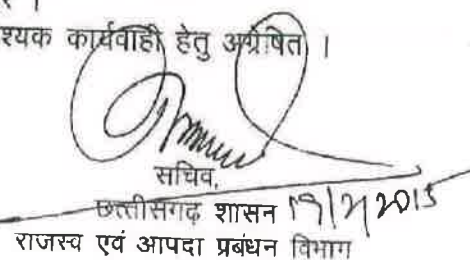 श्यक कार्यवाही हेतु अग्रेषित ।
सचिव,
छत्तीसगढ़ शासन 19/2/2015
राजस्व एवं आपदा प्रबंधन विभाग